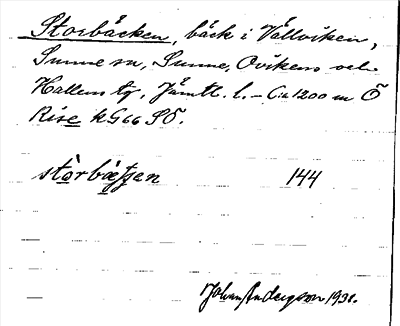 Storbäcken, bäck i Vällviken,
Sunne sn, Sunne, Ovikens och
Hallens tg, Jämtl. l. – C:a 1200 m Ö
Rise kG66 SÖ.
144
Johan Anderson 1931.